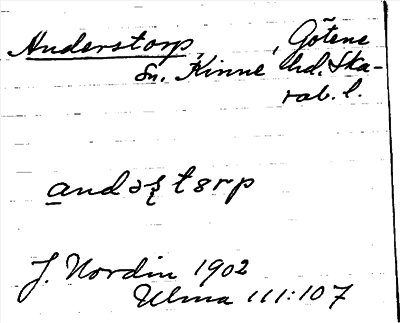 Anderstorp, , Götene
Sn. Kinne hd. Ska-
rab. l.
andəʂtɵrp
J. Nordin 1902
Ulma 111:107